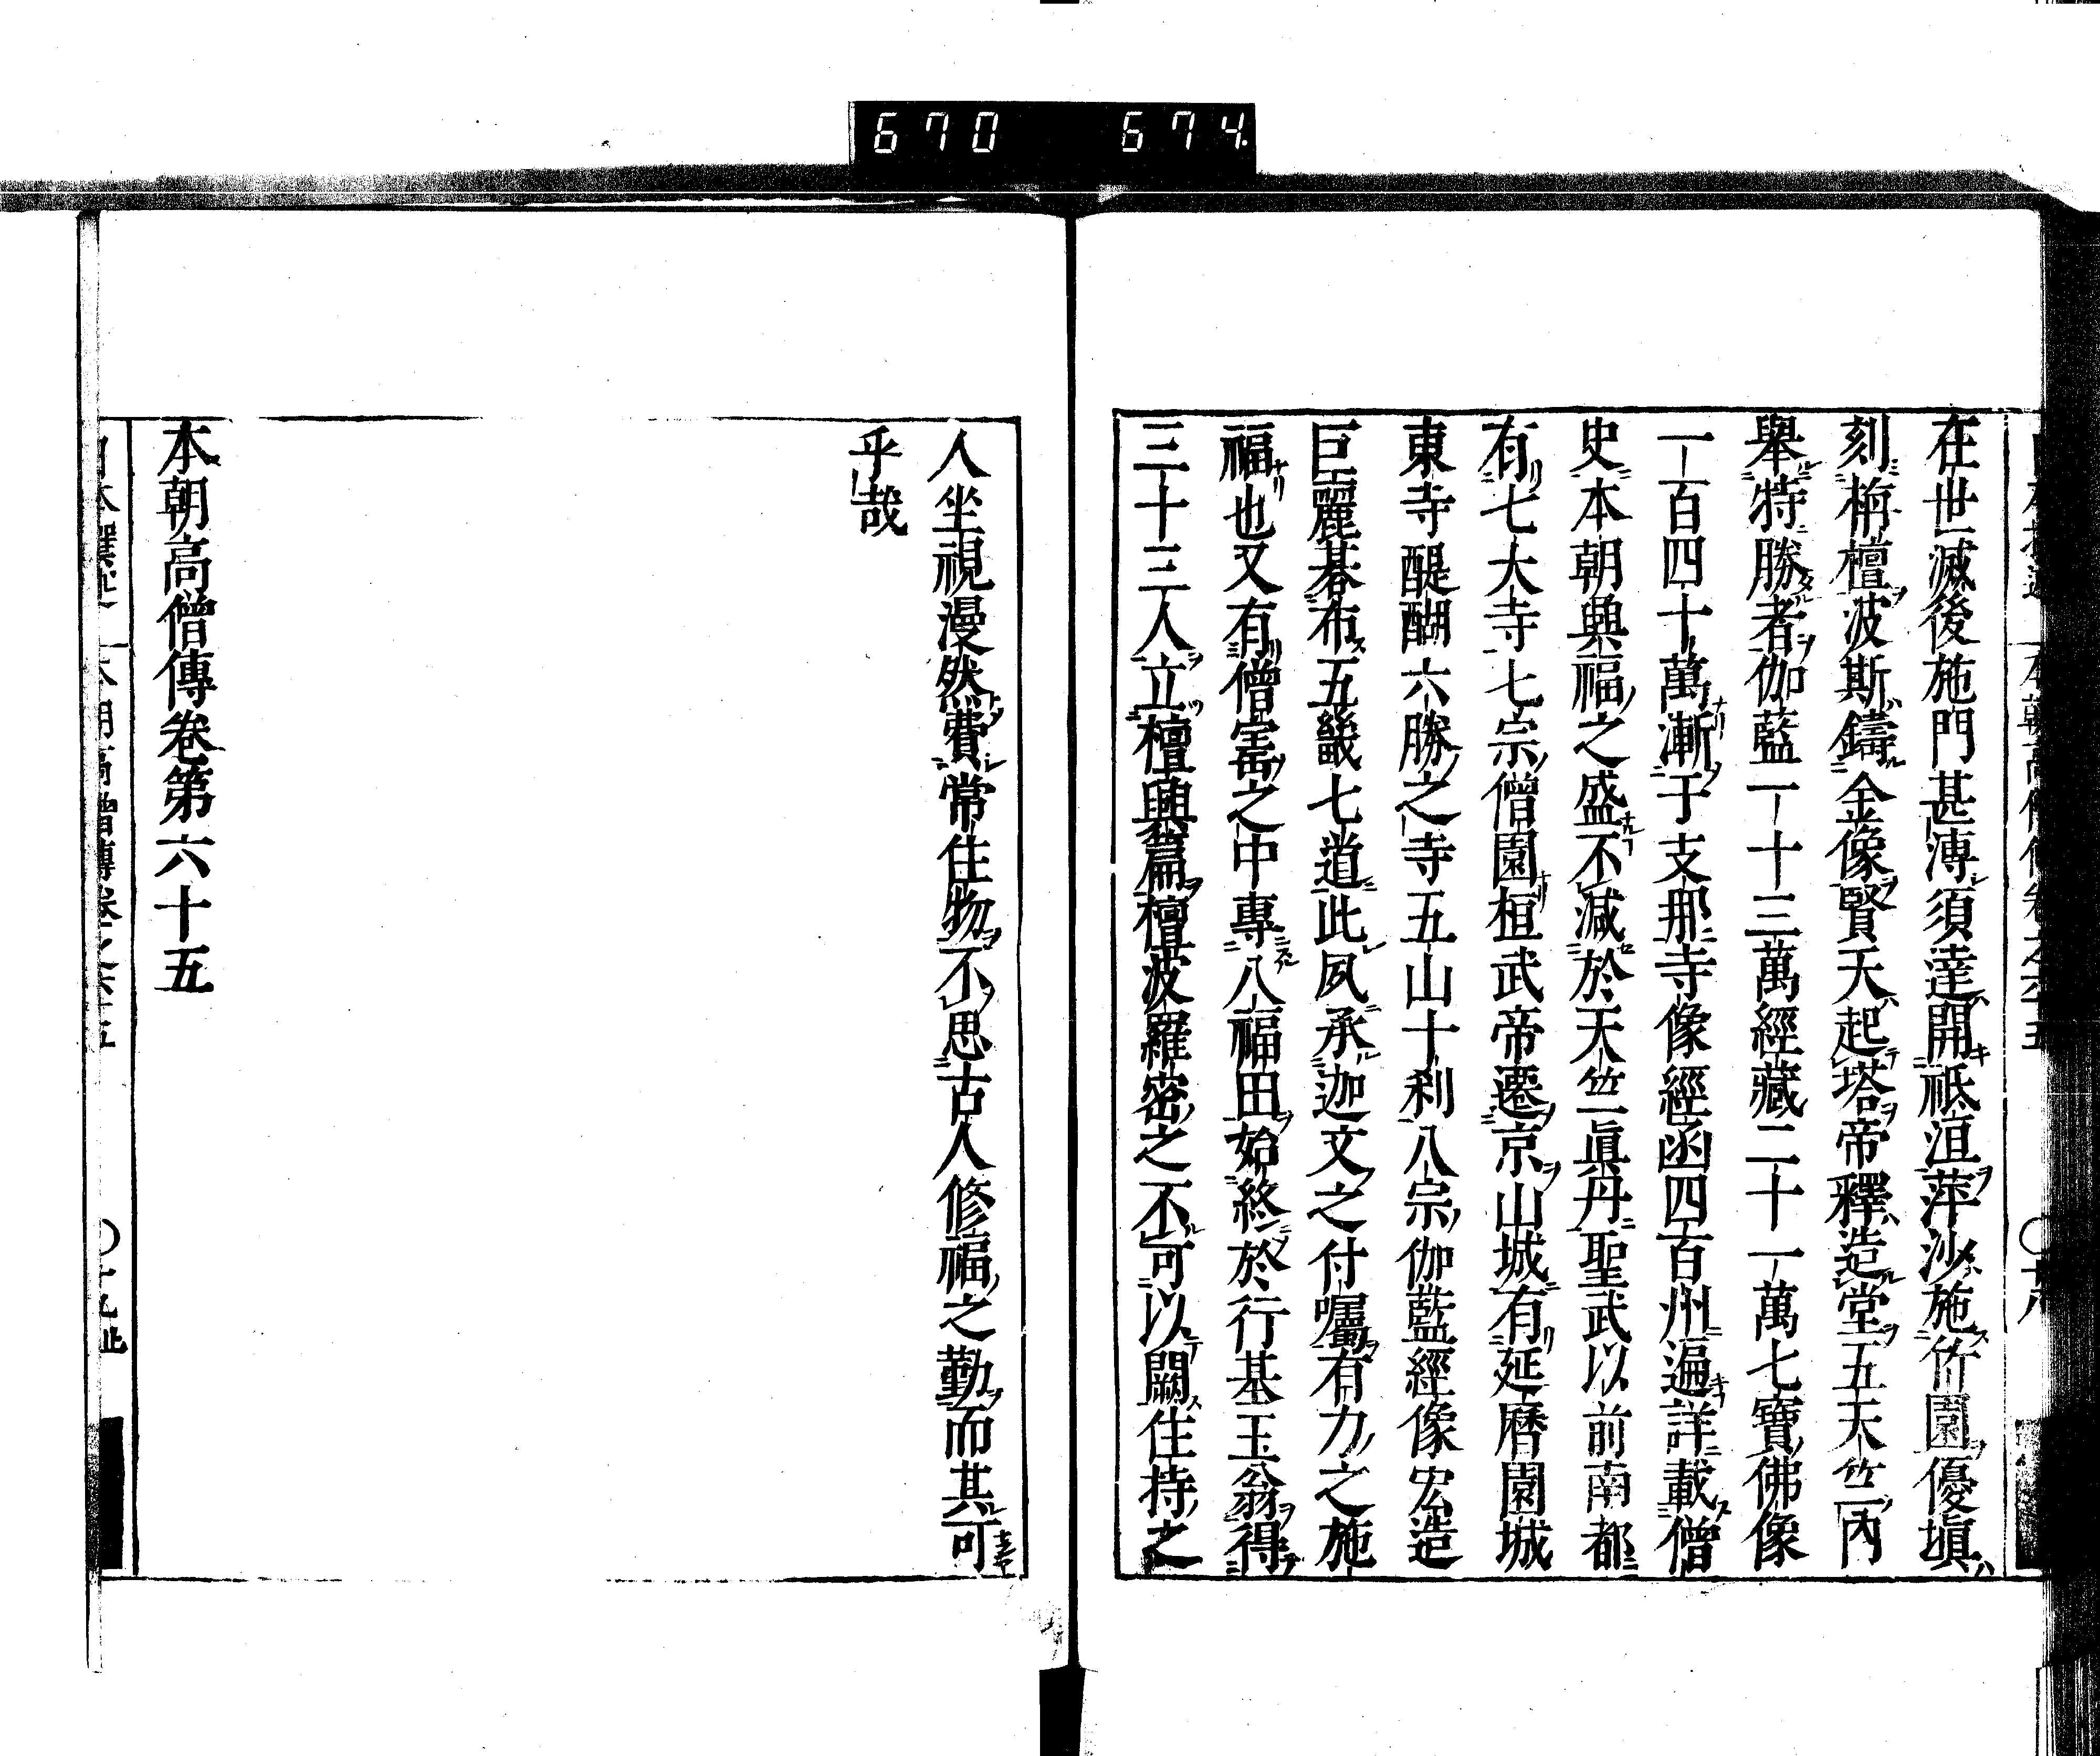 670 674
在世滅後施門甚溥須達開祇洹萍沙施竹園優塡
刻栴檀波斯鑄金像賢天起塔帝釋造堂五天竺內
舉特勝者伽藍一十三萬經藏二十一萬七寶佛像
一百四十萬漸于支那寺像經函四百州遍詳載僧
史本朝興福之盛不減於天竺眞丹聖武以前南都
有七大寺七宗僧園桓武帝遷京山城有延曆園城
東寺醍醐六勝之寺五山十利八宗伽藍經像宏造
巨麗碁布五畿七道此夙承迦文之付囑有力之施
福也又有僧寶之中專八福田始終於行基玉翁得
三十三人立檀興篇檀波羅密之不可以闕住持之
人坐視漫然費常住物不思古人修福之勤而其可
乎哉
本朝高僧傳卷第六十五
本朝高僧傳卷之六十五